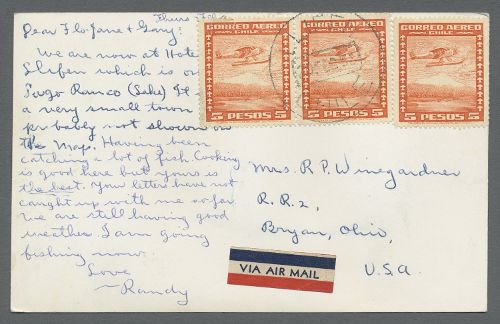 Thurs
Dear Flo Jane & Gary:
We are now at Hote
Llifen which is on
Lago Ranco (Lake) It
a very small town
probably not shown on
the Map. Having been
catching a lot of fish Cooking
is good here but yours is
the best. Your letters have not
caught up with me so far.
We are still having good
weather. I am going
fishing now.
Love
~Randy
CORREO AEREO
CHILE
5 PESOS 5
CORREO AEREO
CHILE
5 PESOS 5
CORREO AEREO
CHILE
5 PESOS 5
Mrs. R. P. Winegardner
R.R. 2,
Bryan, Ohio,
U.S.A.
VIA AIR MAIL